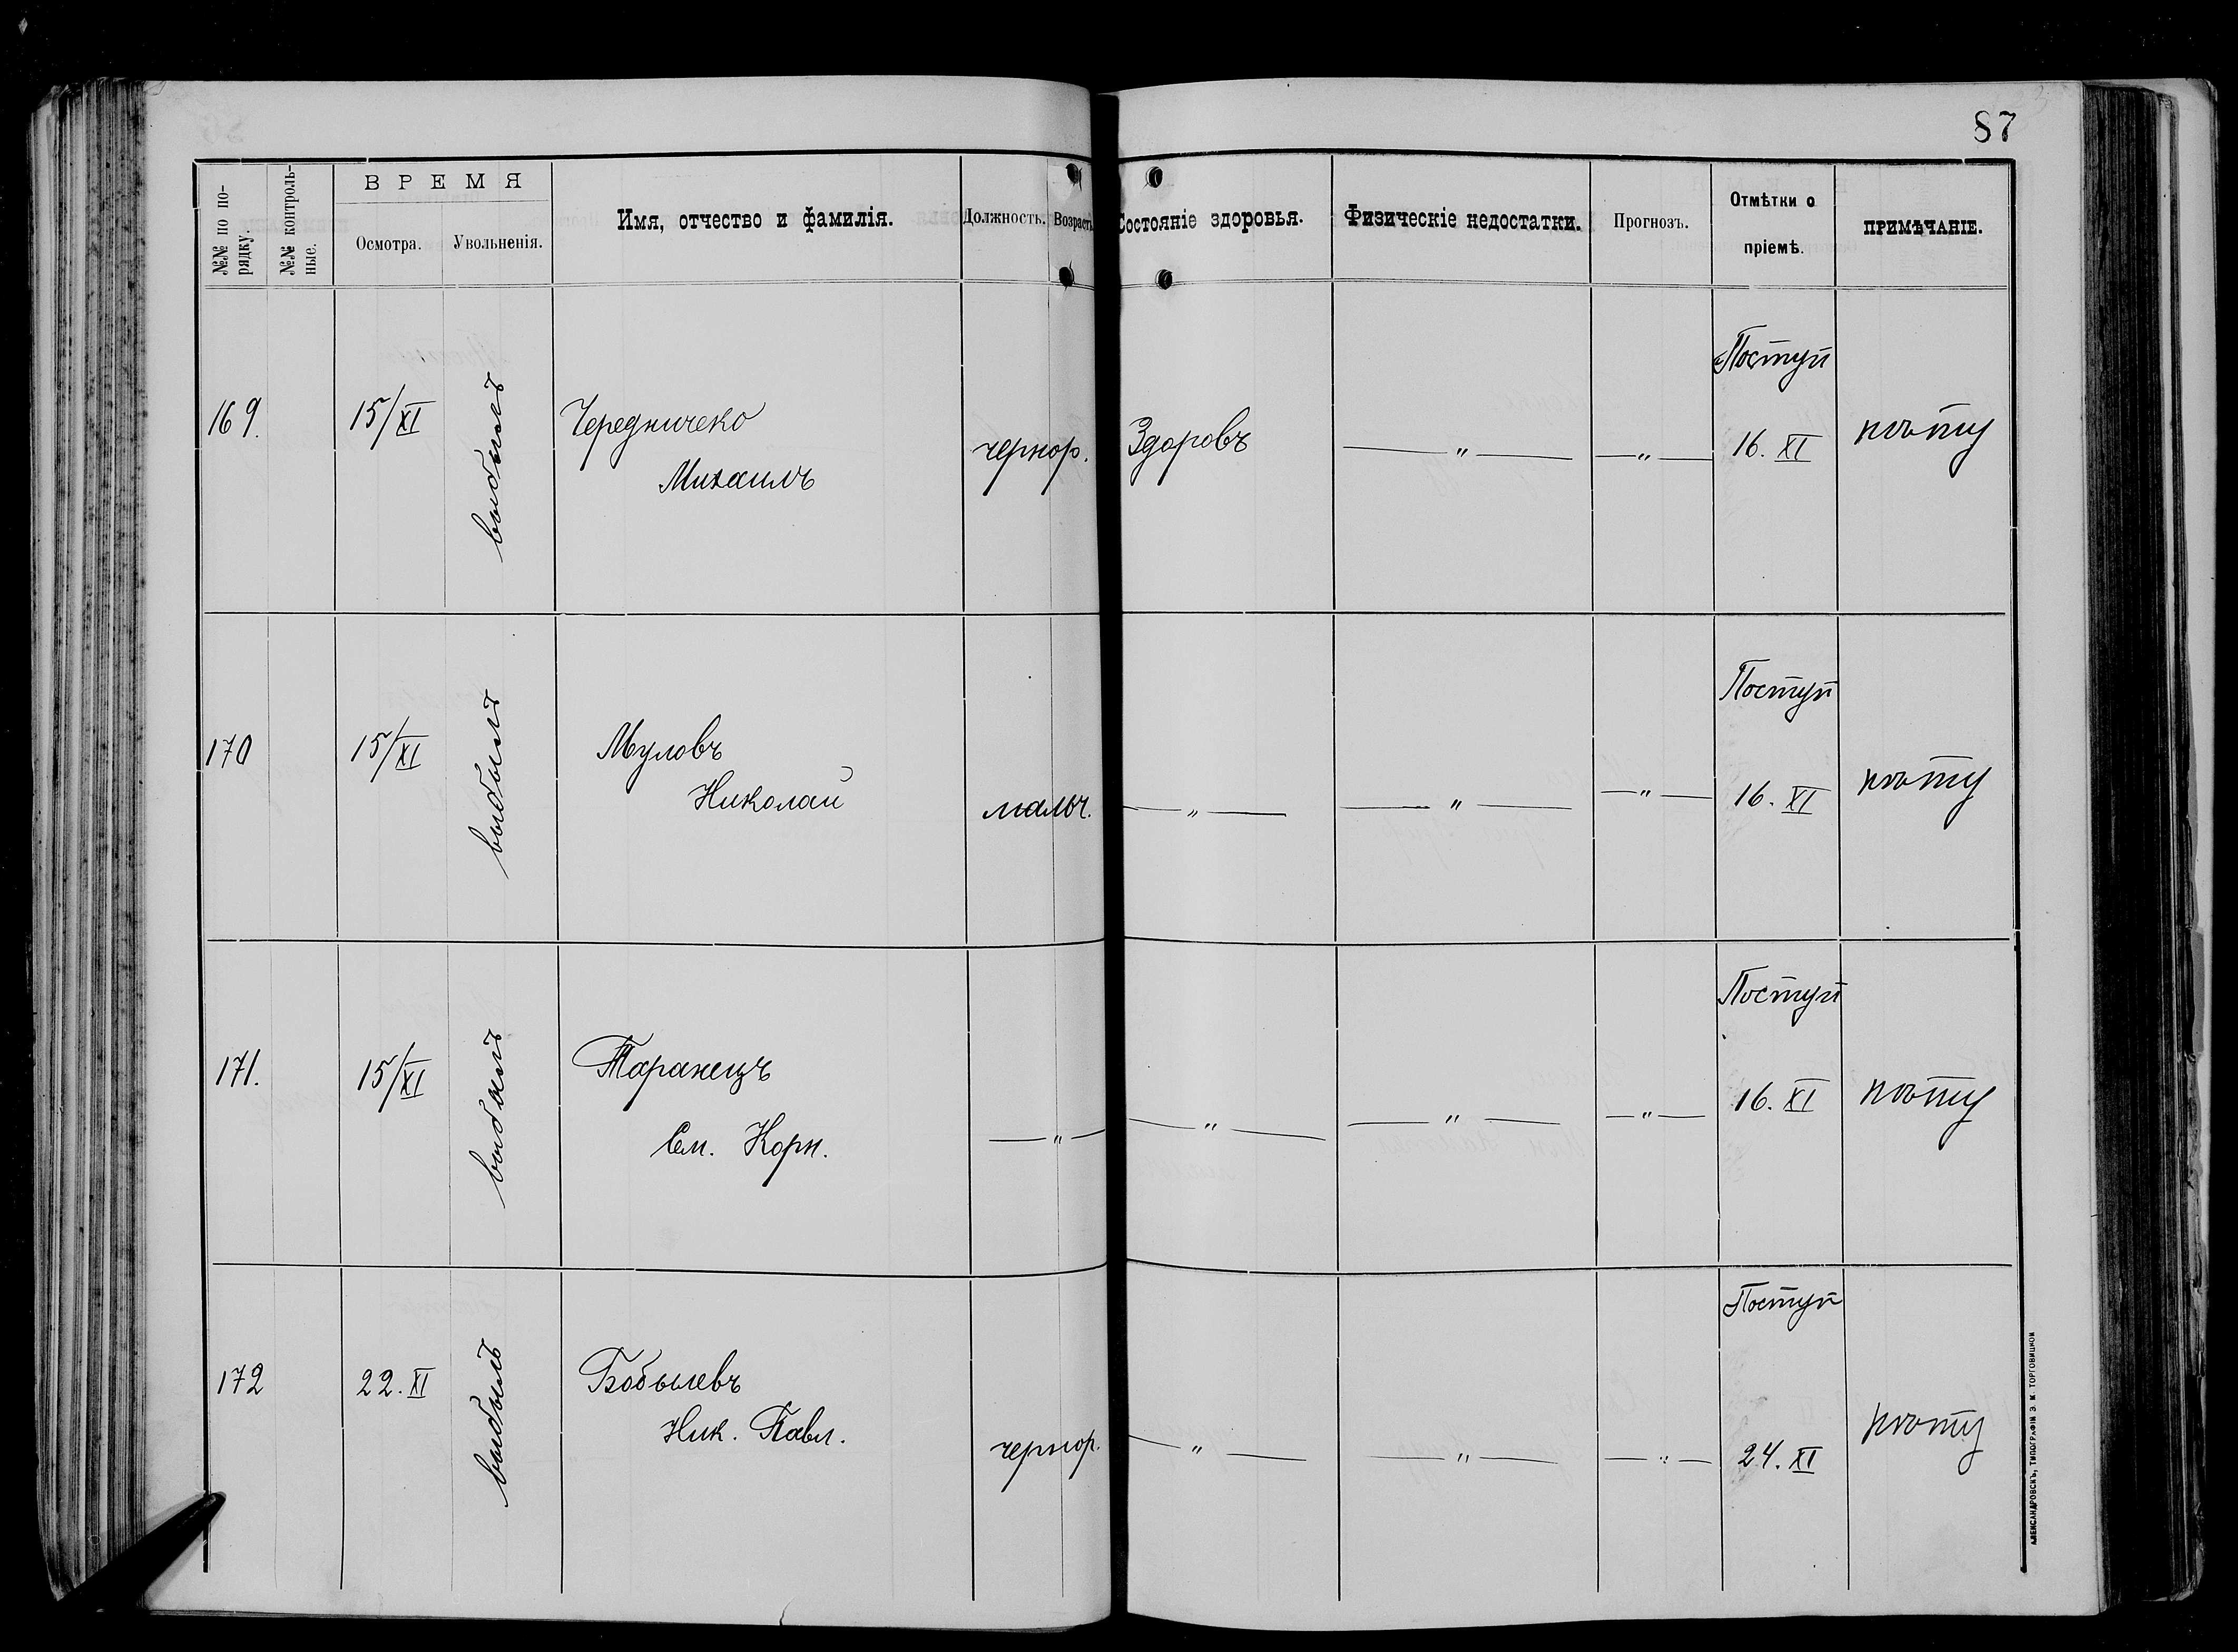 87
№№ по по-
рядку.
№№ контроль-
ные.
ВРЕМЯ
Осмотра.
Увольненія.
Имя, отчество и фамилія.
Должность.
Возрастъ
Состояніе здоровья.
Физическіе недостатки.
Прогнозъ.
Отмѣтки о
пріемѣ.
ПРИМѢЧАНІЕ.
169.
15/XI
выбылъ
Чередничеко
Михаилъ
чернор.
Здоровъ
— " —
— " —
Поступ
16. XI
170
15/XI
выбылъ
Муловъ
Николай
мальч.
— " —
— " —
— " —
Поступ
16. XI
171.
15/XI
выбылъ
Таранецъ
Сем. Корн.
— " —
— " —
— " —
— " —
Поступ
16. XI
172
22. XI
выбылъ
Бобылевъ
Ник. Павл.
чернор.
— " —
— " —
— " —
Поступ
24. XI
АЛЕКСАНДРОВСКЪ, ТИПОГРАФІИ Э. М. ТОРГОВИЦКОЙ